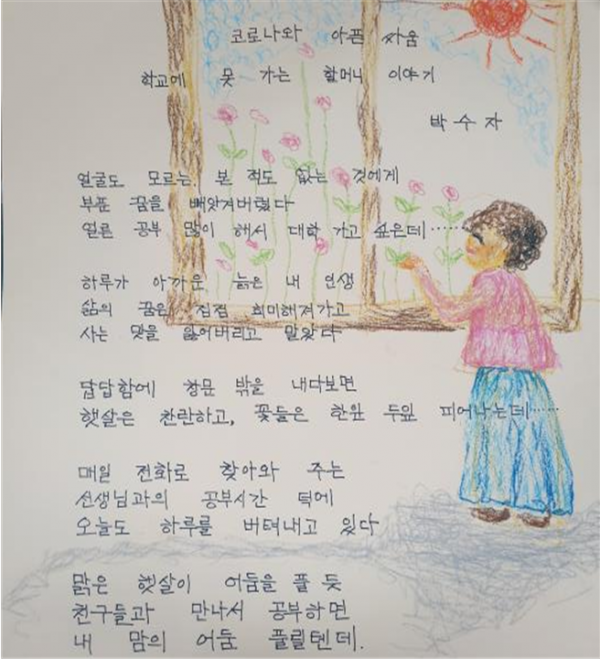 코로나와 아픈 싸움
학교에 못 가는 할머니 이야기
박수자
얼굴도 모르는, 본 적도 없는 것에게
부푼 꿈을 빼앗겨버렸다
얼른 공부 많이 해서 대학 가고 싶은데……
하루가 아까운, 늙은 내 인생
삶의 꿈은 점점 희미해져가고
사는 맛을 잃어버리고 말았다
답답함에 창문 밖을 내다보면
햇살은 찬란하고, 꽃들은 한잎 두잎 피어나는데……
매일 전화로 찾아와 주는
선생님과의 공부시간 덕에
오늘도 하루를 버텨내고 있다
맑은 햇살이 어둠을 풀 듯
친구들과 만나서 공부하면
내 맘의 어둠 풀릴텐데.